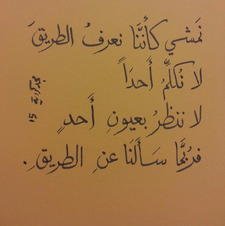 نمشي كأننا نعرفُ الطريقَ
لا نُكلِّمُ أحداً
لا ننظرُ بعيونِ أَحدٍ
فربُّما سأَلَنَا عنِ الطريقِ.